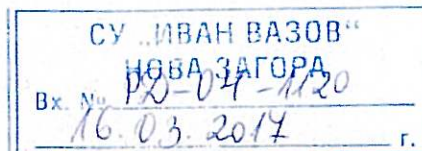 СУ „ИВАН ВАЗОВ“
НОВА ЗАГОРА
Вх. № РД-04-1120
16.03.2017 г.